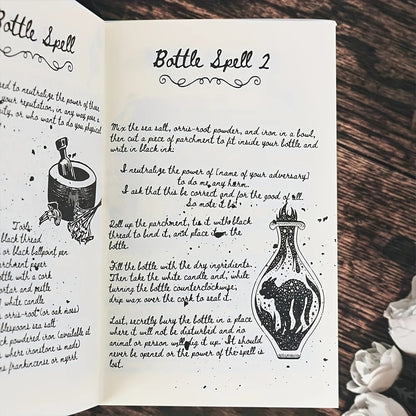 Bottle Spell
ed to neutralize the power of those
your reputation, in any way pose a
ity, or who want to do you physical
Tools:
black thread
or black ballpoint pen
parchment paper
bottle with a cork
ortar and pestle
white candle
orris-root (or oak moss)
blespoons sea salt
k powdered iron (available at
where ironstone is made)
ns frankincense or myrrh
Bottle Spell 2
Mix the sea salt, orris-root powder, and iron in a bowl,
then cut a piece of parchment to fit inside your bottle and
write in black ink:
I neutralize the power of (name of your adversary)
to do me any harm.
I ask that this be correct and for the good of all.
So mote it be.
Roll up the parchment, tie it with black
thread to bind it, and place it in the
bottle.
Fill the bottle with the dry ingredients.
Then take the white candle and, while
turning the bottle counterclockwise,
drip wax over the cork to seal it.
Last, secretly bury the bottle in a place
where it will not be disturbed and no
animal or person will dig it up. It should
never be opened or the power of the spell is
lost.